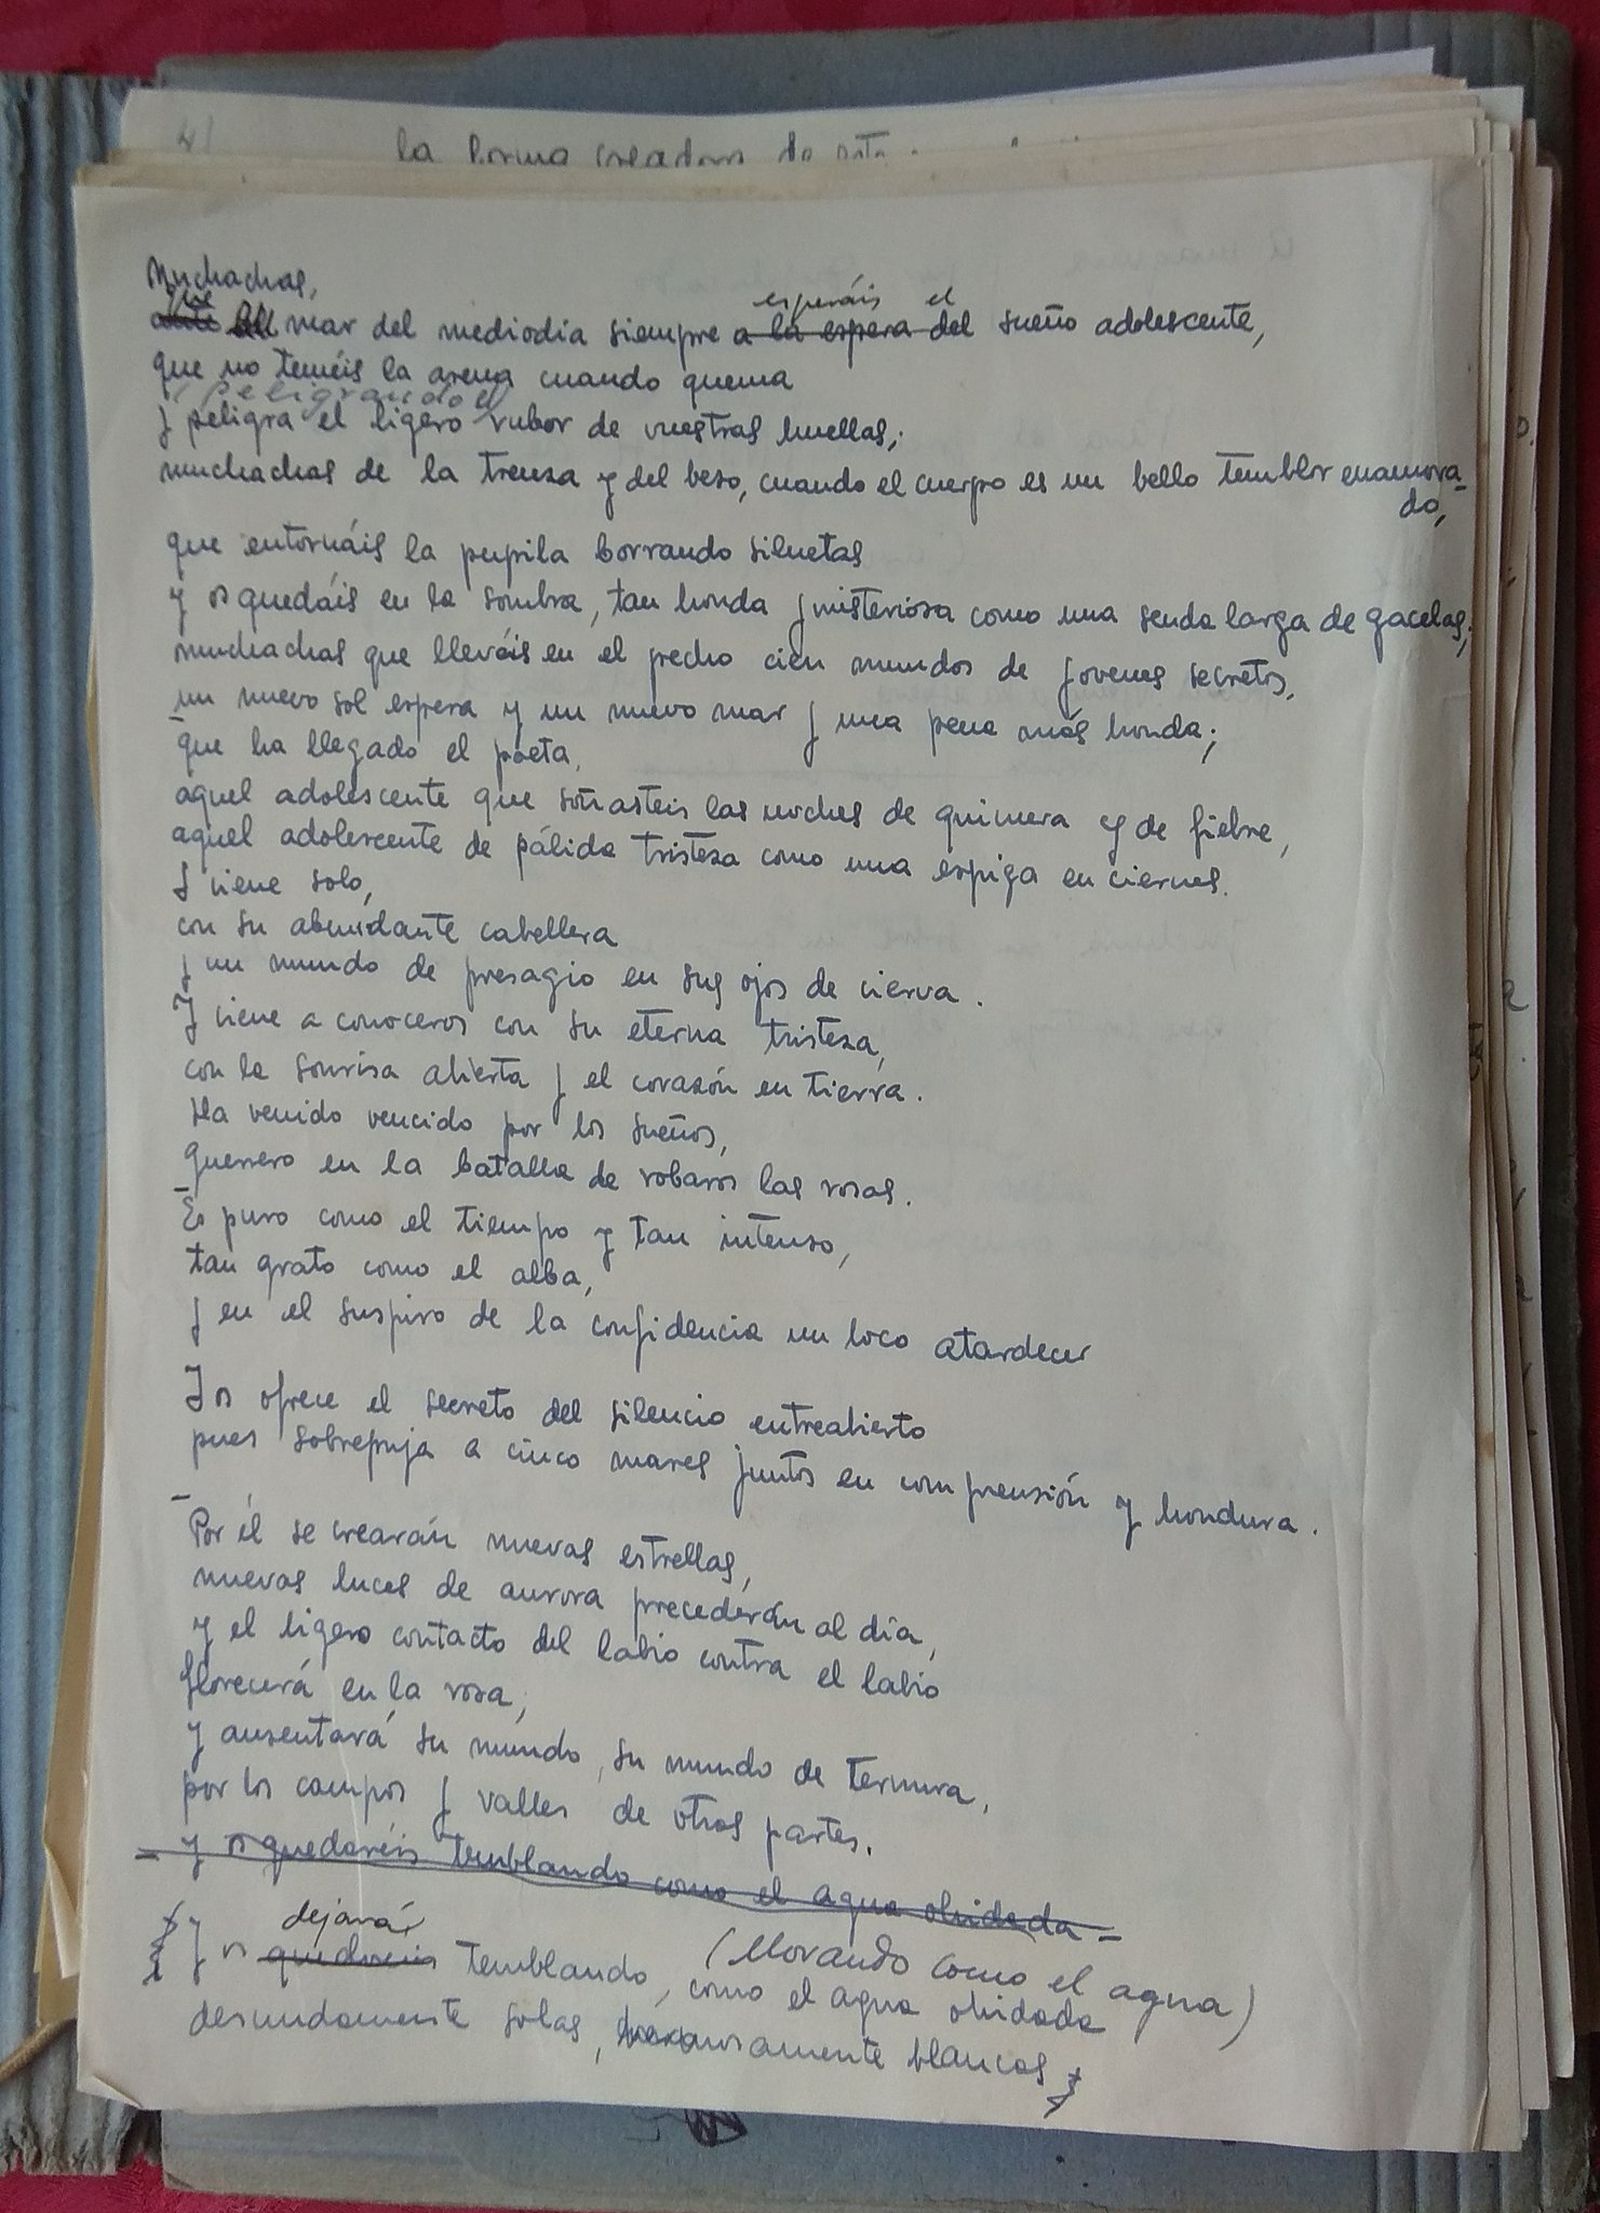 la forma creadora de
Muchachas,
que
ante al mar del mediodía siempre a la espera del sueño adolescente,
esperáis el
que no teméis la arena cuando quema
(peligrando el)
y peligra el ligero rubor de vuestras huellas;
muchachas de la trenza y del beso, cuando el cuerpo es un bello temblor enamora-
do,
que entornáis la pupila borrando siluetas
y os quedáis en la sombra, tan honda y misteriosa como una senda larga de gacelas;
muchachas que lleváis en el pecho cien mundos de jovenes secretos,
un nuevo sol espera y un nuevo mar y una pena más honda;
que ha llegado el poeta,
aquel adolescente que soñasteis las noches de quimera y de fiebre,
aquel adolescente de pálida tristeza como una espiga en ciernes.
Y viene solo,
con su abundante cabellera
y un mundo de presagio en sus ojos de cierva.
Y viene a conoceros con su eterna tristeza,
con la sonrisa abierta y el corazón en tierra.
Ha venido vencido por los sueños,
guerrero en la batalla de robaros las rosas.
Es puro como el tiempo y tan intenso,
tan grato como el alba,
y en el suspiro de la confidencia un loco atardecer
Y os ofrece el secreto del silencio entreabierto
pues sobrepuja a cinco mares juntos en comprensión y hondura.
Por él se crearán nuevas estrellas,
nuevas luces de aurora precederán al día,
y el ligero contacto del labio contra el labio
florecerá en la rosa,
y ausentará su mundo, su mundo de ternura,
por los campos y valles de otras partes.
- y os quedaréis temblando como el agua olvidada -
dejará
Y os quedaréis temblando, como el agua olvidada
(llorando como el agua)
desnudamente solas, blancas